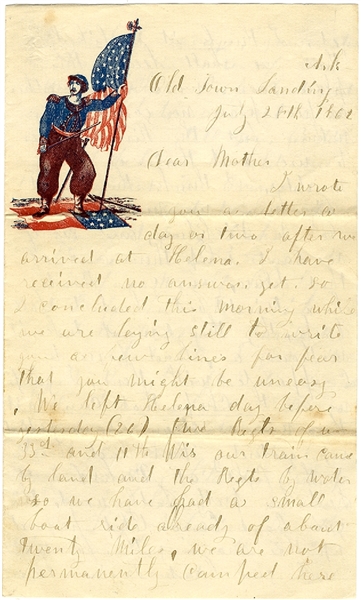 Ark
Old Town Landing
July 28th 1862
Dear Mother
I wrote
you a letter a
day or two after we
arrived at Helena. I have
received no answer yet. so
I concluded this morning while
we are laying still to write
you a few lines for fear
that you might be uneasy
We left Helena day before
yesterday (26) two Regts of us
33rd and 11th Wis our train came
by land and the Regts by water
so we have had a small
boat ride already of about
twenty Miles, we are not
permanently camped here